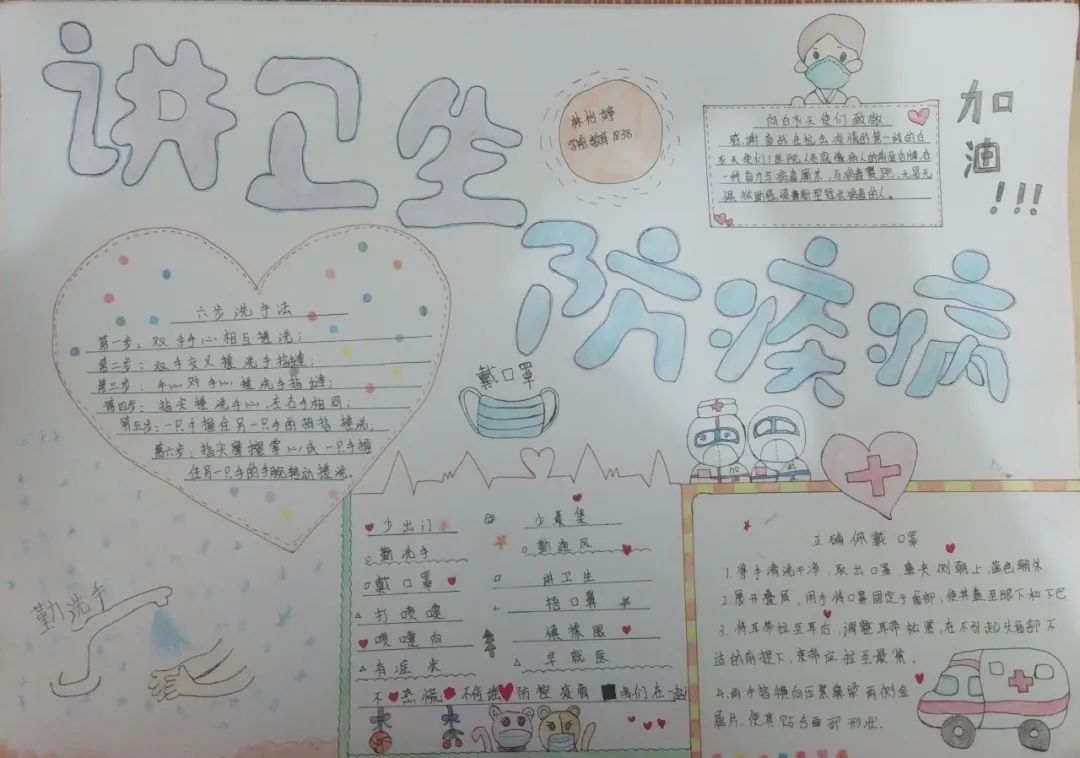 讲卫生
防疾病
林怡婷
加油!!!
向白衣天使们致敬
感谢奋战在抗击疫情的第一线的白
衣天使们!医院
一线奋力与病毒
与病毒赛跑,无畏无
惧
六步洗手法
第一步:双手手心相互搓洗;
第二步:双手交叉搓洗手指缝;
第三步:手心对手心搓洗手指缝;
第四步:指尖搓洗手心,左右手相同;
第五步:一只手握住另一只手的拇指搓洗,
第六步:指尖摩擦掌心或一只手握
住另一只手的手腕转动搓洗。
戴口罩
勤洗手
少出门
少聚集
勤洗手
勤通风
戴口罩
讲卫生
打喷嚏
捂口鼻
喷嚏后
慎揉眼
有症状
早就医
不恐慌 不传谣 防控疫情 我们在一起
正确佩戴口罩
1.将手清洗干净,取出口罩 鼻夹侧朝上,蓝色朝外
2.展开叠层,用手将口罩固定于面部,使其盖至眼下和下巴
3.将耳带拉至耳后,调整耳带松紧,在不引起头面部不
适的前提下,束带应拉至最紧。
4.两手指横向压紧鼻梁两侧金
属片,使其贴合面部形状.